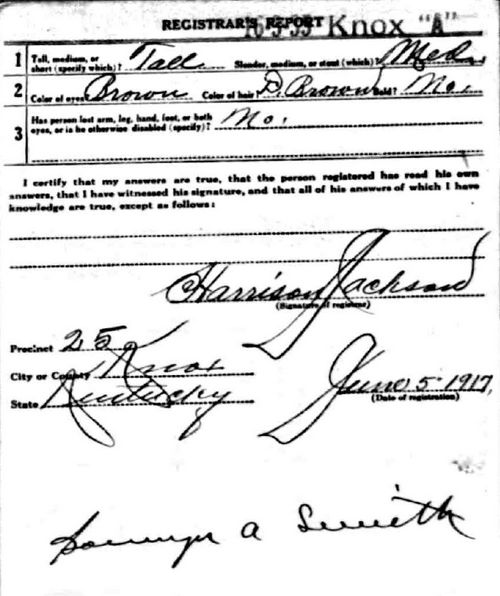 REGISTRAR'S REPORT
16-3-33 Knox "A"
1 Tall, medium, or short (specify which)? Tall Slender, medium, or stout (which)? Med.
2 Color of eyes Brown Color of hair? D. Brown Bald? No.
3 Has person lost arm, leg, hand, foot, or both
eyes, or is he otherwise disabled (specify)? No.
I certify that my answers are true, that the person registered has read his own
answers, that I have witnessed his signature, and that all of his answers of which I have
knowledge are true, except as follows:
Harrison Jackson
(Signature of registrar)
Precinct 25
City or County Knox
State Kentucky
June 5-1917,
(Date of registration)
A Smith